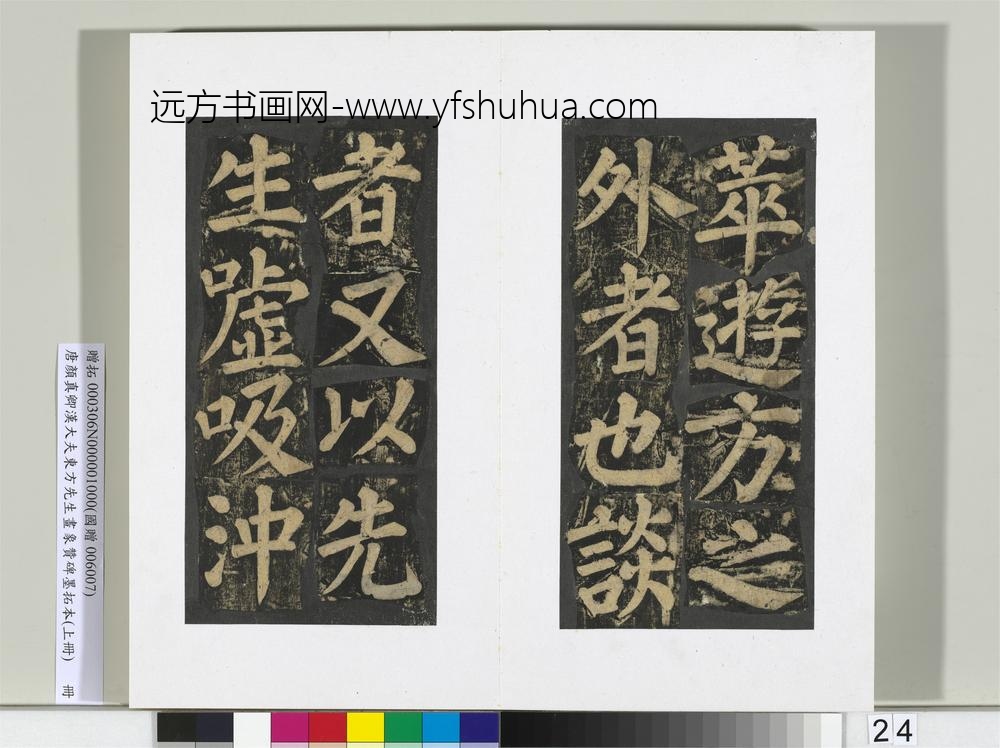 远方书画网-www.yfshuhua.com
萃遊方之
外者也談
者又以先
生噓吸沖
贈拓 000306N000001000(國贈 006007)
唐顏真卿漢大夫東方先生畫象贊碑墨拓本(上冊) 冊
24